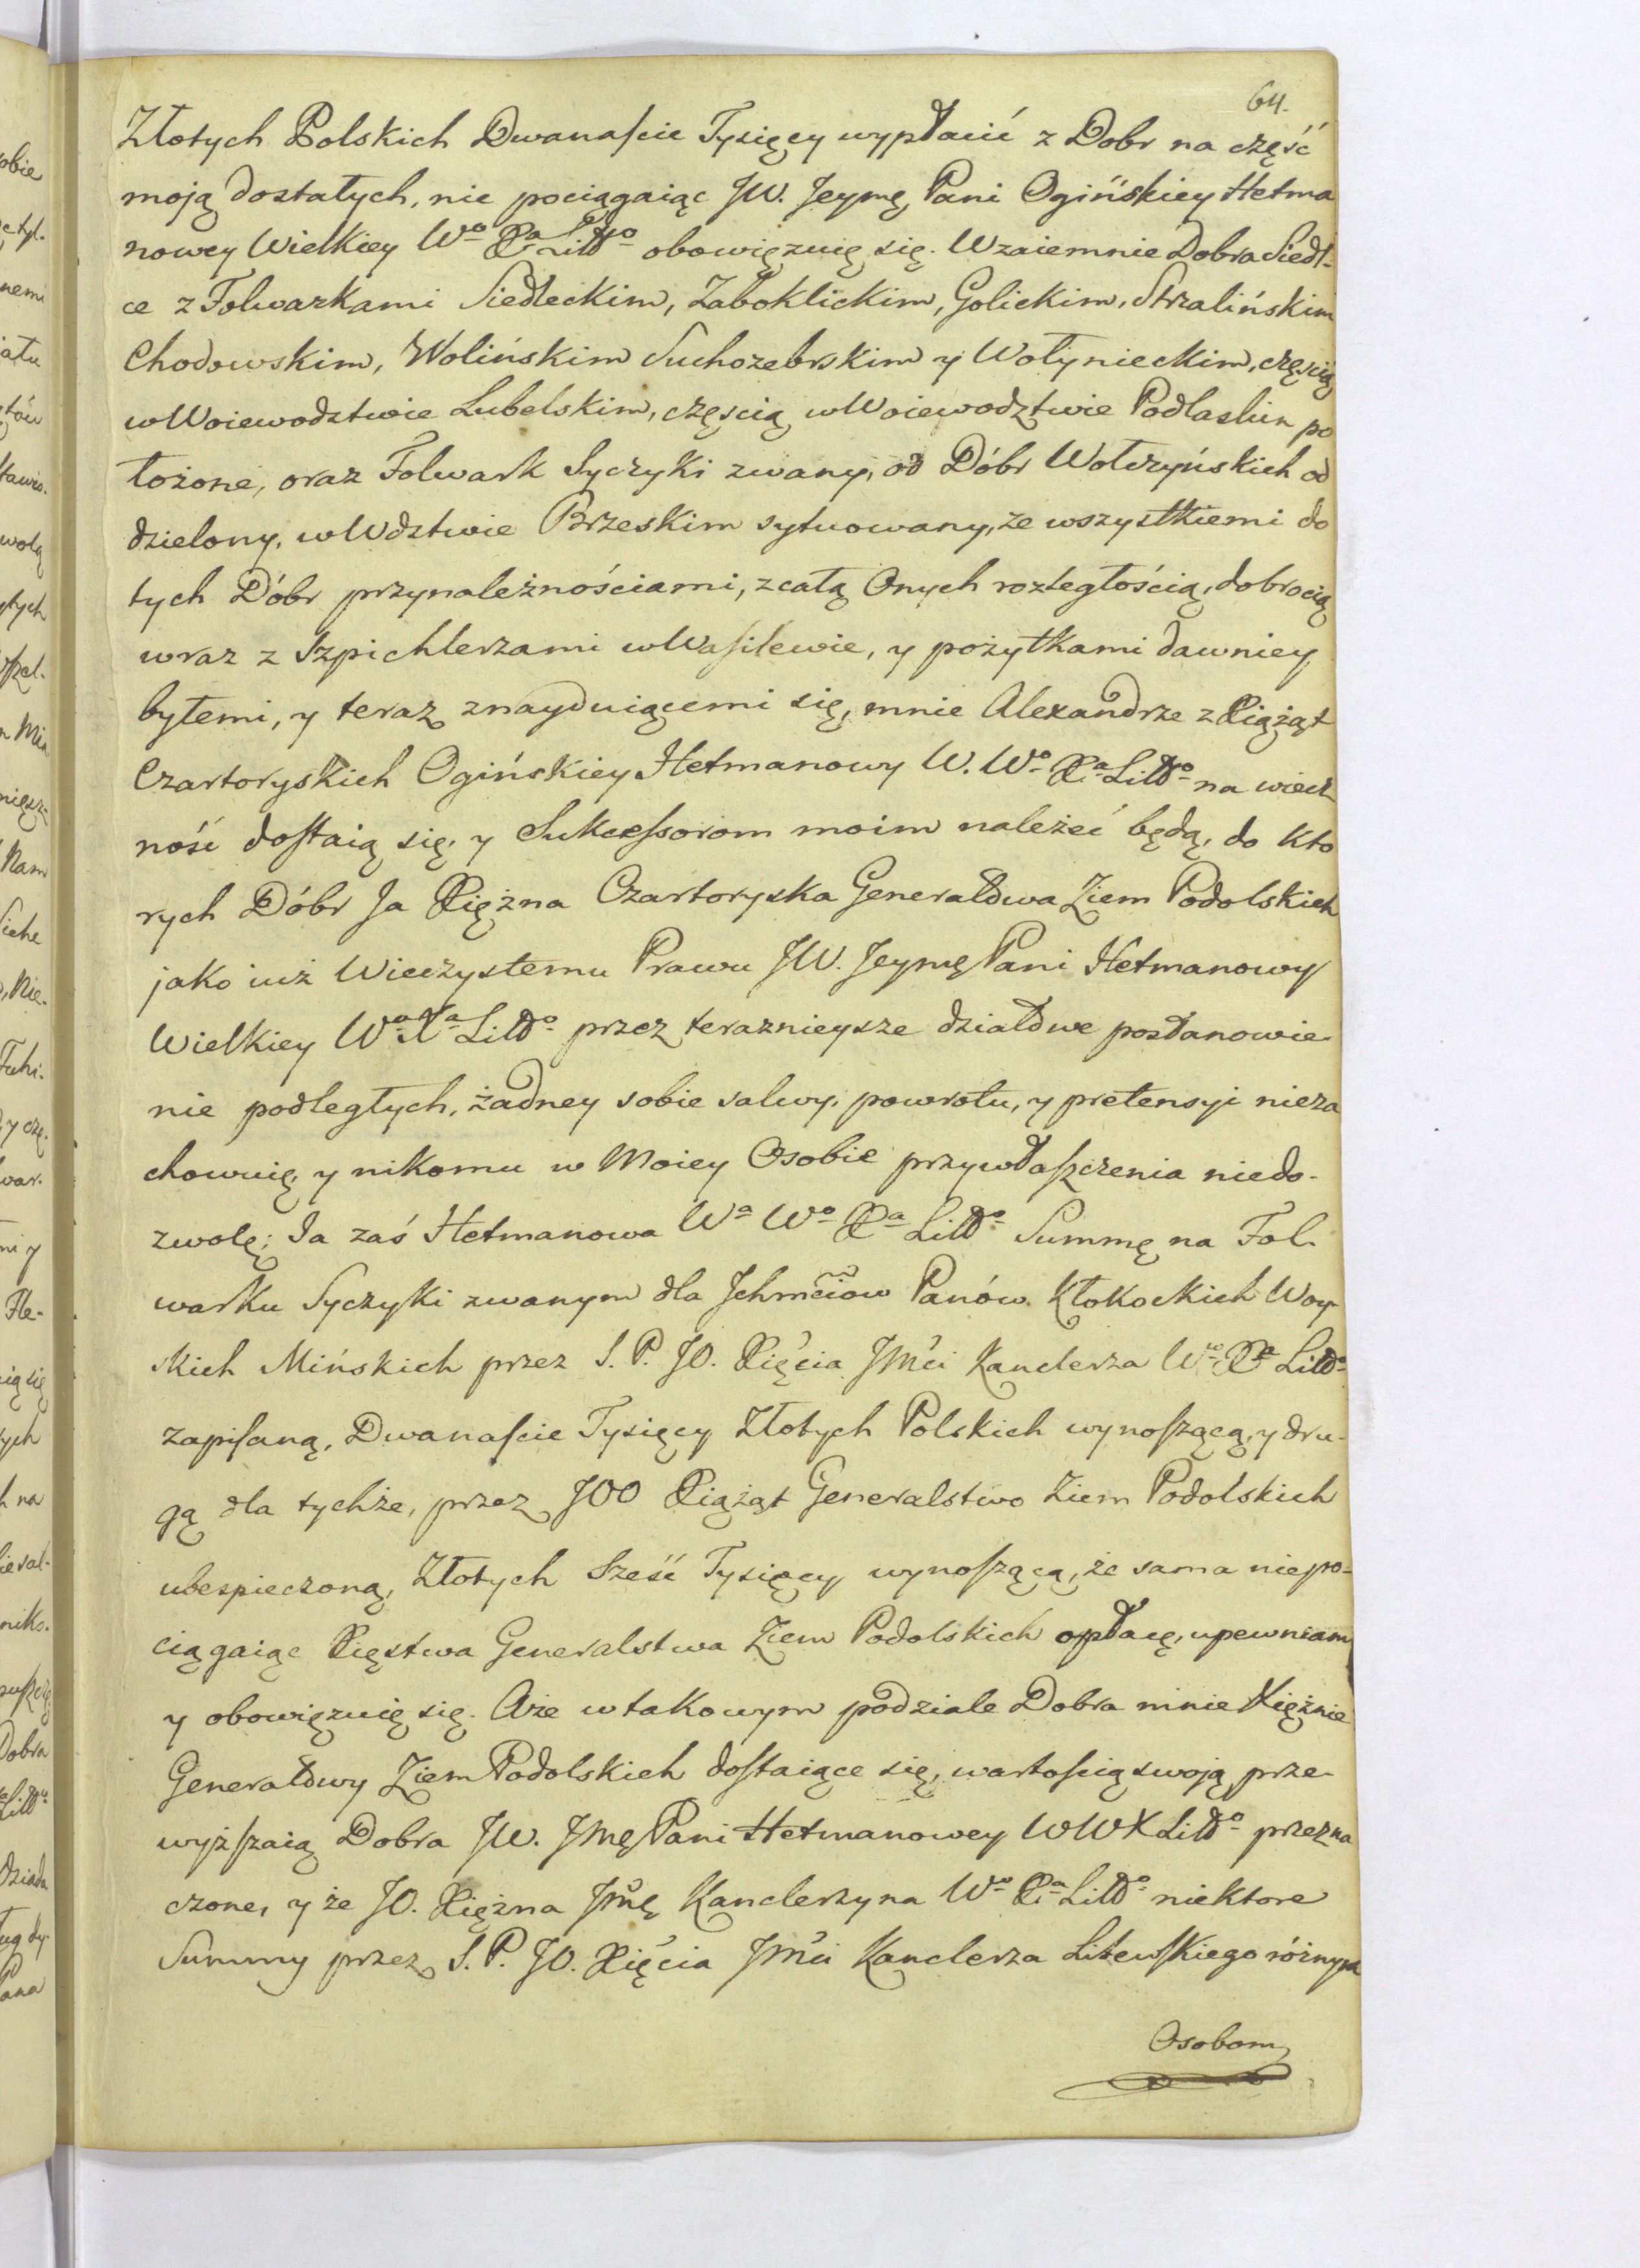 64.
Złotych Polskich Dwanaście Tysięcy wypłacić z Dobr na część
moją dostałych, nie pociągaiąc JW. Jeymę Pani Ogińskiey Hetma
nowey Wielkiey Wo Xa Littgo obowięzuię się. Wzaiemnie Dobra Siedl-
ce z Folwarkami Siedleckim, Zaboklickim, Golickim, Strzalińskim
Chodowskim, Wolińskim Suchozebrskim y Wołynieckim, częścią
w Woiewodztwie Lubelskim, częścią w Woiewodztwie Podlaskim po
łożone, oraz Folwark Syczyki zwany, od Dóbr Wołczyńskich od
dzielony, w Wdztwie Brzeskim sytuowany, ze wszystkiemi do
tych Dóbr przynależnościami, z całą Onych rozległością, dobrocią
wraz z Szpichlerzami w Wasilewie, y pożytkami dawniey
byłemi, y teraz znayduiącemi się, mnie Alexandrze z Xiążąt
Czartoryskich Ogińskiey Hetmanowy W. Wo Xa Littgo na wiecz
ność dostaią się, y Sukcessorom moim należeć będą, do kto
rych Dóbr Ja Xiężna Czartoryska Generałowa Ziem Podolskich
jako iuż Wieczystemu Prawu JW. Jeymę Pani Hetmanowy
Wielkiey Wo Xa Littgo przez teraznieysze działowe postanowie-
nie podległych, żadney sobie salwy, powrotu, y pretensyi nieza
chowuię, y nikomu w Moiey Osobie przywłaszczenia niedo-
zwolę; Ja zaś Hetmanowa Wa Wo Xa Littgo Summę na Fol-
warku Syczyki zwanym dla Jchmciow Panów Kłokockich Woy-
skich Mińskich przez S. P. JO. Xięcia Jmći Kanclerza Wo Xa Littgo
zapisaną, Dwanaście Tysięcy Złotych Polskich wynoszącą, y dru-
gą dla tychże, przez JOO Xiążąt Generalstwo Ziem Podolskich
ubespieczoną, Złotych Sześć Tysięcy wynoszącą, że sama niepo-
ciągaiąc Xięstwa Generalstwa Ziem Podolskich opłacę, upewniam
y obowięzuię się. A że w takowym podziale Dobra mnie Xiężnie
Generałowy Ziem Podolskich dostaiące się, wartością swoją prze-
wyższaią Dobra JW. Jmę Pani Hetmanowey WWX Littgo przezna
czone, y że JO. Xiężna Jmę Kanclerzyna Wo Xa Littgo niektore
Summy przez S. P. JO. Xięcia Jmći Kanclerza Litewskiego różnym
Osobom